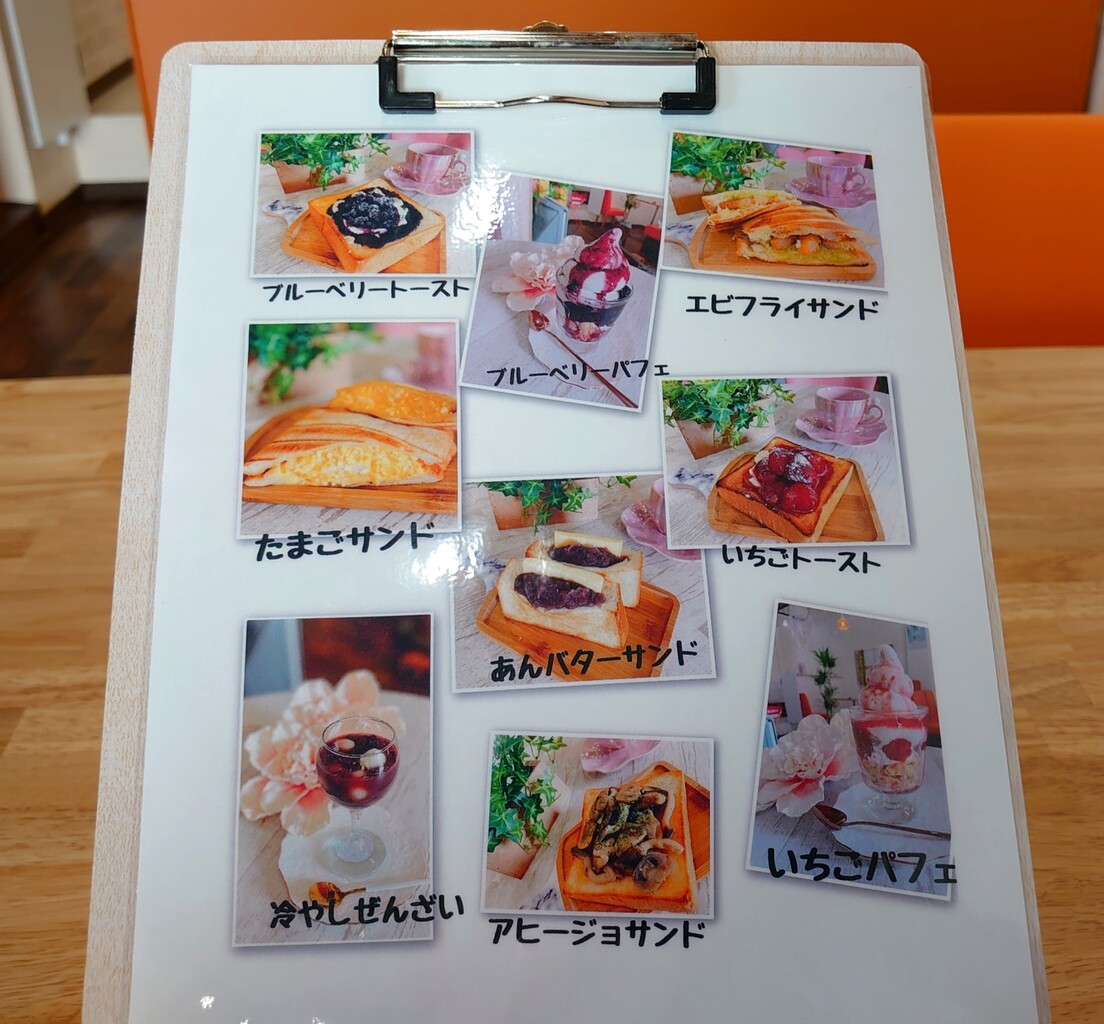 ブルーベリートースト
ブルーベリーパフェ
エビフライサンド
たまごサンド
いちごトースト
あんバターサンド
冷やしぜんざい
アヒージョサンド
いちごパフェ